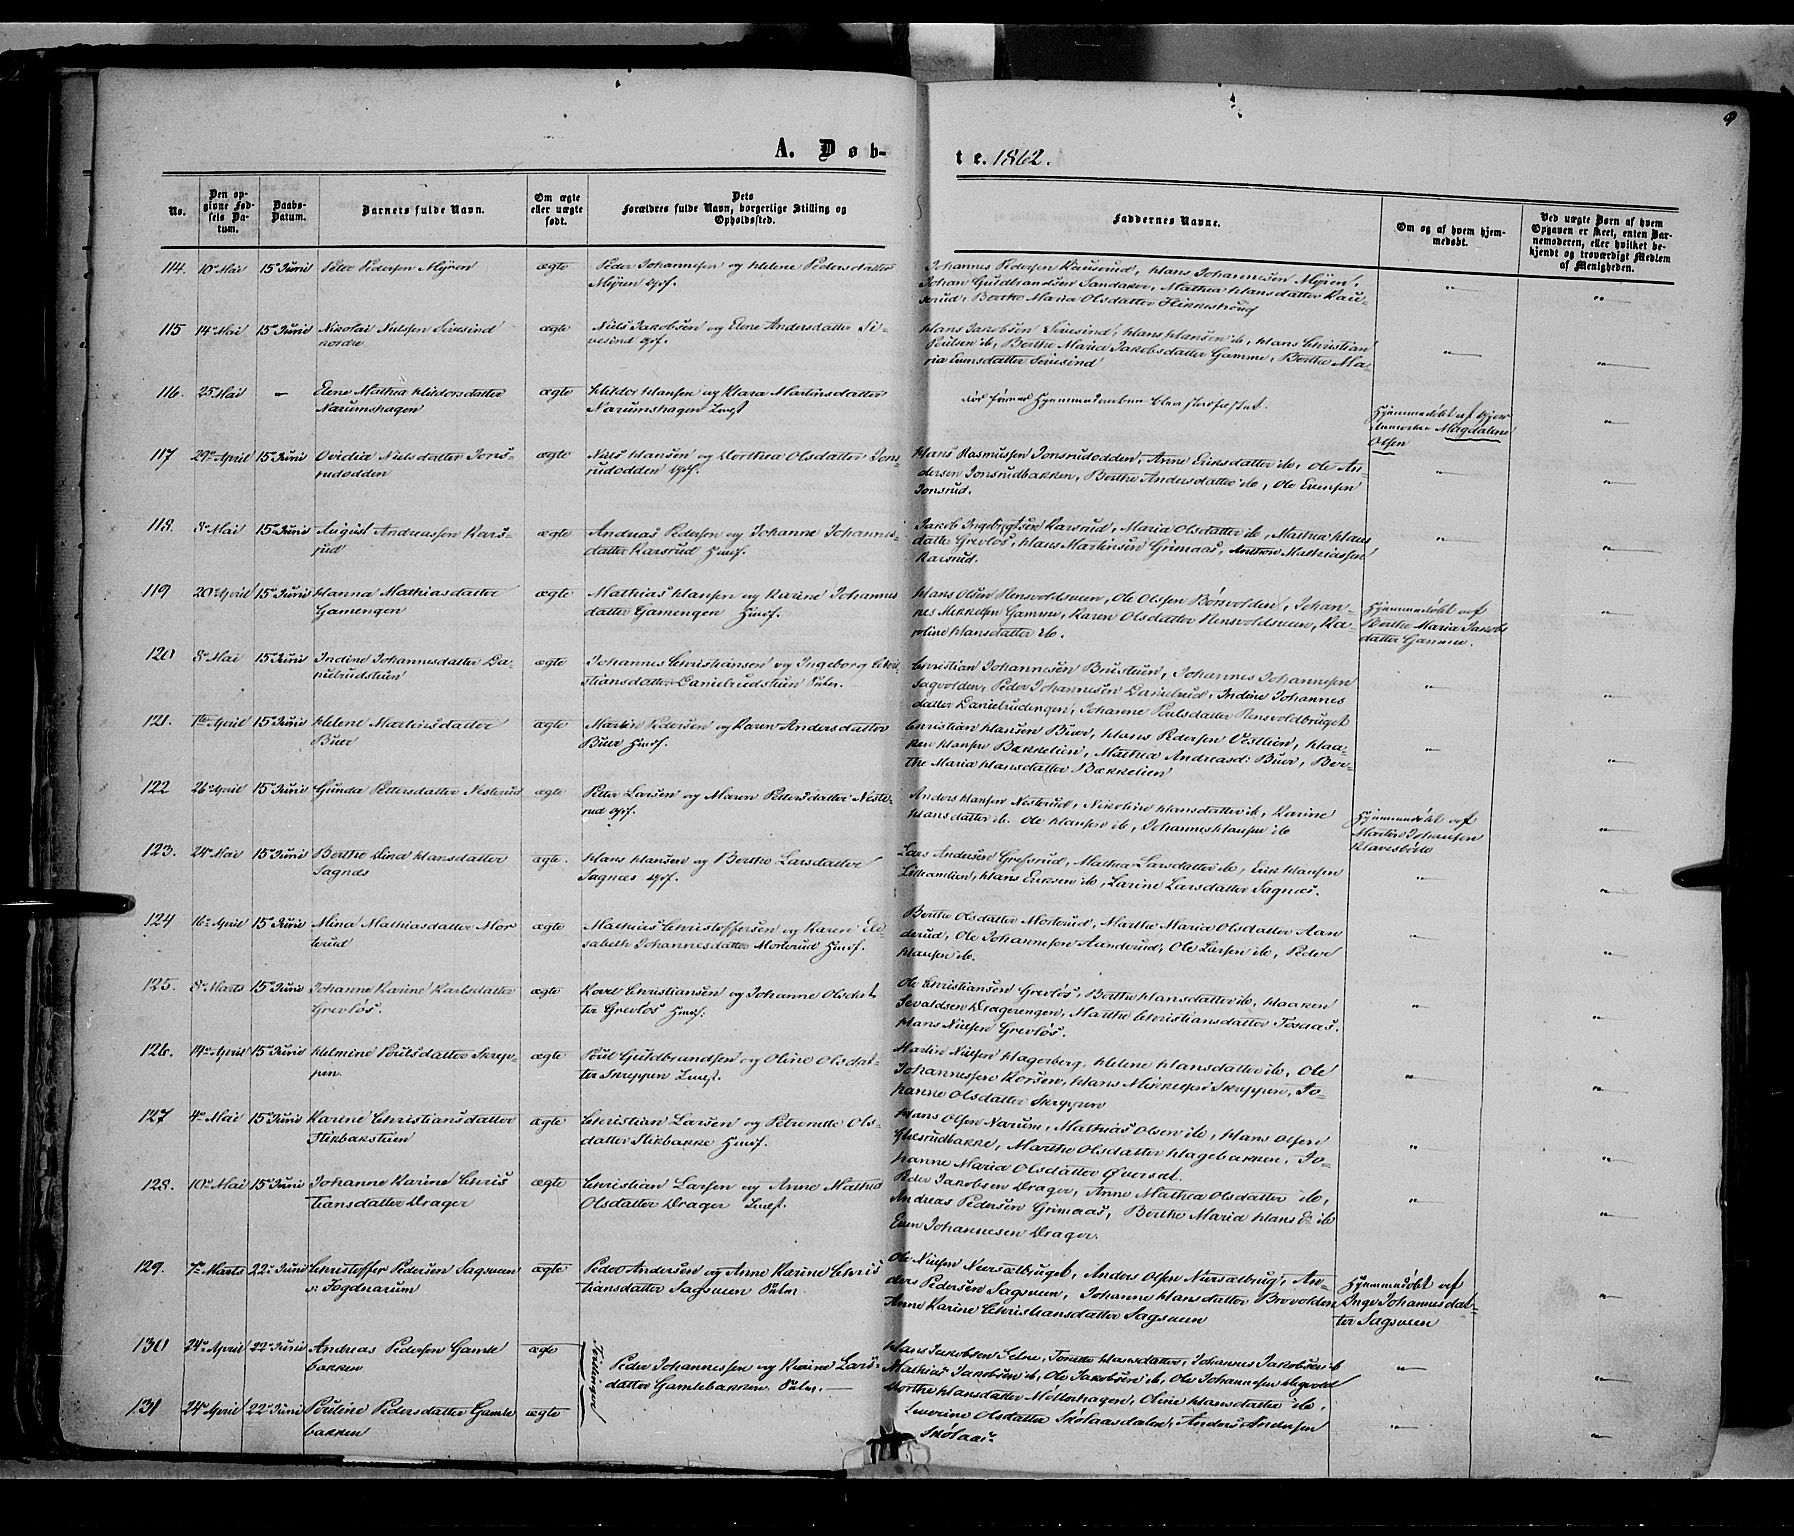 9
A. Døb-
te. 1862.
No.
Den op-
givne Fød-
sels Da-
tum.
Daabs-
Datum.
Barnets fulde Navn.
Om ægte
eller uægte
født.
Dets
Forældres fulde Navn, borgerlige Stilling og
Opholdssted.
Faddernes Navne.
Om og af hvem hjem-
medøbt.
Ved uægte Børn af hvem
Opgaven er skeet, enten Bar-
nemoderen, eller hvilket be-
kjendt og troværdigt Medlem
af Menigheden.
114. 10de Mai 15de Juni Peter Pedersen Myren ægte Peder Johannesen og Helene Pedersdatter
Myren
Johannes Pedersen Rausrud, Hans Johannesen Myren,
Johan Guldbrandsen Sandaker, Mathea Hansdatter Rau-
serud, Berthe Maria Olsdatter
115 14de Mai 15de Juni Nikolai Nielsen Sivesind
nordre
ægte Niels Jakobsen og Elene Andersdatter Si-
vesind
Hans Jakobsen Sivesind, Hans Hansen ib, Hans Christian
Poulsen ib, Berthe Maria Jakobsdatter Gamme, Berthe Ma-
ria Evensdatter Sivesind
116. 25de Mai – Elene Mathea Hildorsdatter
Narumshagen
ægte Hildor Hansen og Klara Martinsdatter
Narumshagen Inst
Hjemmedaaben blev stadfæstet.
Hjemmedøbt af
Magdalene
Olsen
117 29de April 15de Juni Ovidia Nielsdatter Jons-
rudodden
ægte Niels Hansen og Dorthea Olsdatter Jons-
rudodden
Hans Rasmussen Jonsrudodden, Anne Eriksdatter ib, Ole An-
dersen Jonsrudbakken, Berthe Andersdatter ib, Ole Evensen
Jonsrud.
118. 8de Mai 15de Juni August Andreassen Kars-
rud
ægte Andreas Pedersen og Johanne Johannes-
datter Karsrud Husf.
Jakob Ingebrigtsen Karsrud, Maria Olsdatter ib, Mathea Hans
datter Grevløs, Hans Martinsen Grimaas, Mathiassen
Karsrud.
119 20de April 15de Juni Hanna Mathiasdatter
Gamengen
ægte Mathias Hansen og Karine Johannes
datter Gamengen Husf.
Hans Olsen Rensvoldsveen, Ole Olsen Børsvolden, Johan-
nes Mikkelsen Gamme, Karen Olsdatter Rensvoldsveen, Ka-
roline Hansdatter ib.
Hjemmedøbt af
Berthe Maria Jakobs
datter Gamme.
120 8de Mai 15de Juni Indine Johannesdatter Da-
nielrudstuen
ægte Johannes Christiansen og Ingeborg Chri-
stiansdatter Danielrudstuen
Christian Johannesen Brustuen, Johannes Johannesen
Sagvolden, Peder Johannesen Danielrud, Indine Johannes
datter Danielrudengen, Johanne Poulsdatter Rensvoldbruget
121. 1ste April 15de Juni Helene Martinsdatter
Buer
ægte Martin Pedersen og Karen Andersdatter
Buer Husf.
Christian Hansen Buer, Hans Pedersen Vestlien, Haa-
ken Hansen Bækkelien, Mathea Andreasd: Buer, Ber-
the Maria Hansdatter Bækkelien
122 26de April 15de Juni Gunda Pettersdatter Nesterud ægte Petter Larsen og Maren Pettersdatter Neste-
rud
Anders Hansen Nesterud, Nikoline Hansdatter ib, Karine
Hansdatter ib. Ole Hansen ib, Johannes Hansen ib
Hjemmedøbt af
Martin Johansen
123. 24de Mai 15de Juni Berthe Dina Hansdatter
Sagnæs
ægte. Hans Hansen og Berthe Larsdatter
Sagnæs
Lars Andersen Grefsrud, Mathea Larsdatter ib, Erik Hansen
Lilleamlien, Hans Eriksen ib, Larine Larsdatter Sagnæs.
124 16de April 15de Juni Mina Mathiasdatter Mor
terud
ægte Mathias Christoffersen og Karen Eli-
sabeth Johannesdatter Morterud Husf.
Berthe Olsdatter Morterud, Marthe Maria Olsdatter Aan
derud, Ole Johannesen Aanderud, Ole Larsen ib, Peder
Hansen ib.
125. 8de Marts 15de Juni Johanne Karine Karlsdatter
Grevløs.
ægte Karl Christiansen og Johanne Olsdat
ter Grevløs Husf.
Ole Christiansen Grevløs, Berthe Hansdatter ib, Haaken
Sevaldsen Dragerengen, Marthe Christiansdatter Tosaas.
Hans Nielsen Grevløs.
126. 14de April 15de Juni Helmine Poulsdatter Skrep-
pen.
ægte Poul Guldbrandsen og Oline Olsdat-
ter Skreppen Inst.
Martin Nielsen Hagerberg, Helene Hansdatter ib, Ole
Johannessen Korsen, Hans Mikkelsen Skreppen, Jo-
hanne Olsdatter Skreppen
127 4de Mai 15de Juni Karine Christiansdatter
Stikbakstuen
ægte Christian Larsen og Petronette Ols-
datter Stikbakke Husf.
Hans Olsen Narum, Mathias Olsen ib, Hans Olsen
Marthe Olsdatter Hagebakken, Jo-
hanne Maria Olsdatter Øversæt.
128. 10de Mai 15de Juni Johanne Karine Chris
tiansdatter Drager
ægte Christian Larsen og Anne Mathea
Olsdatter Drager Inst.
Peder Jakobsen Drager, Anne Mathea Olsdatter ib,
Andreas Pedersen Grimaas, Berthe Maria Hansd: ib
Even Johannesen Drager.
129. 7de Marts 22de Juni Christoffer Pedersen Sagsveen
s: Fogdnarum
ægte Peder Andersen og Anne Karine Chris
tiansdatter Sagsveen
Ole Nielsen Nersætbruget, Anders Olsen Nersætbrug, An-
ders Pedersen Sagsveen, Johanne Hansdatter Brovolden
Anne Karine Christiansdatter Sagsveen
Hjemmedøbt af
Inge Johannesdat-
ter Sagsveen
130 24de April 22de Juni Andreas Pedersen Gamle
bakken
ægte
Tvillinger
Peder Johannessen og Karine Lars-
datter Gamlebakken
Hans Jakobsen Selne, Tonette Hansdatter, Johannes Jakobsen ib
Mathias Jakobsen ib, Ole Jakobsen ib, Ole Johannesen
131 24de April 22de Juni Pouline Pedersdatter Gamle
bakken
ægte
Dorthe Hansdatter Møllerhagen, Oline Hansdatter ib,
Severine Olsdatter Skølaasdalen, Anders Andersen
Skølaas